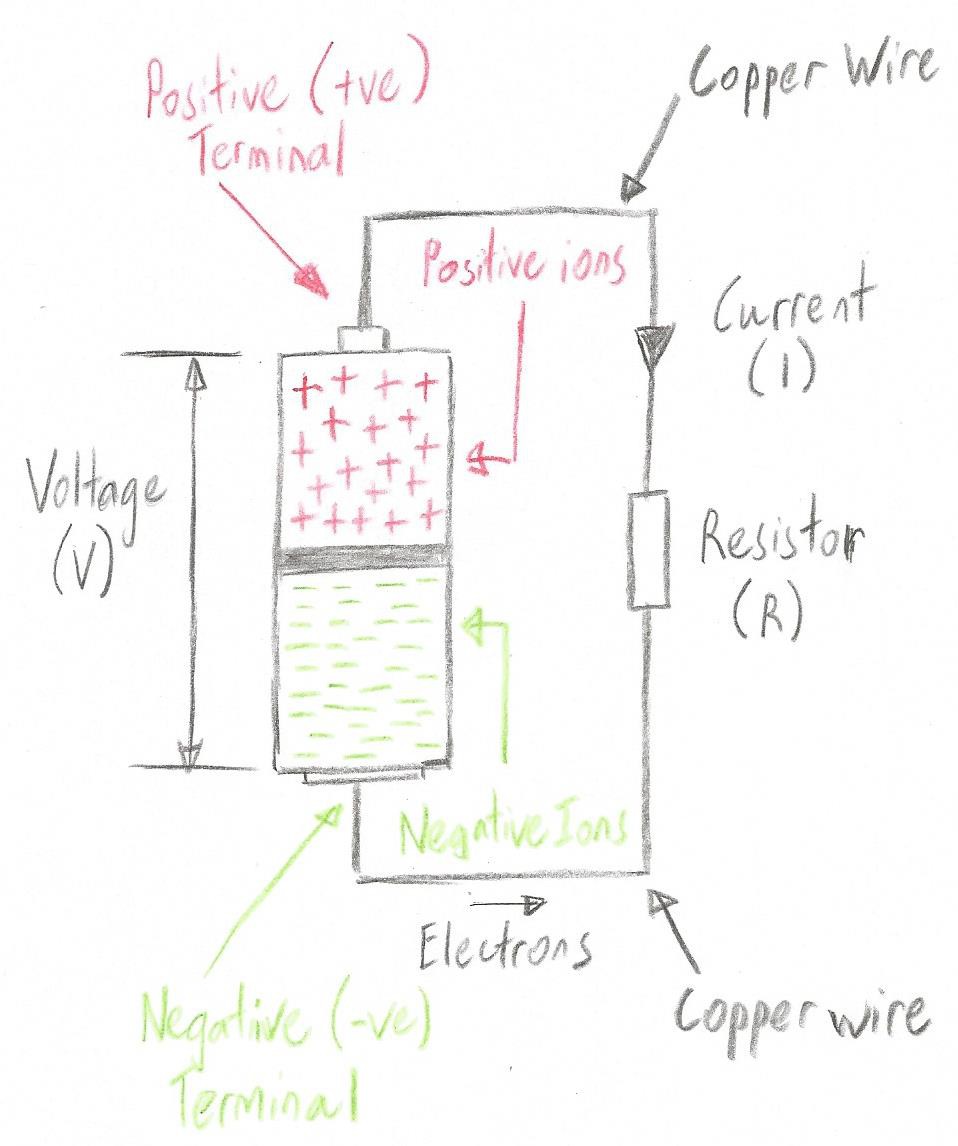 Positive (+ve)
Terminal
Copper Wire
Positive ions
Current
(I)
Voltage
(V)
Resistor
(R)
Negative Ions
Electrons
Negative (-ve)
Terminal
Copper wire